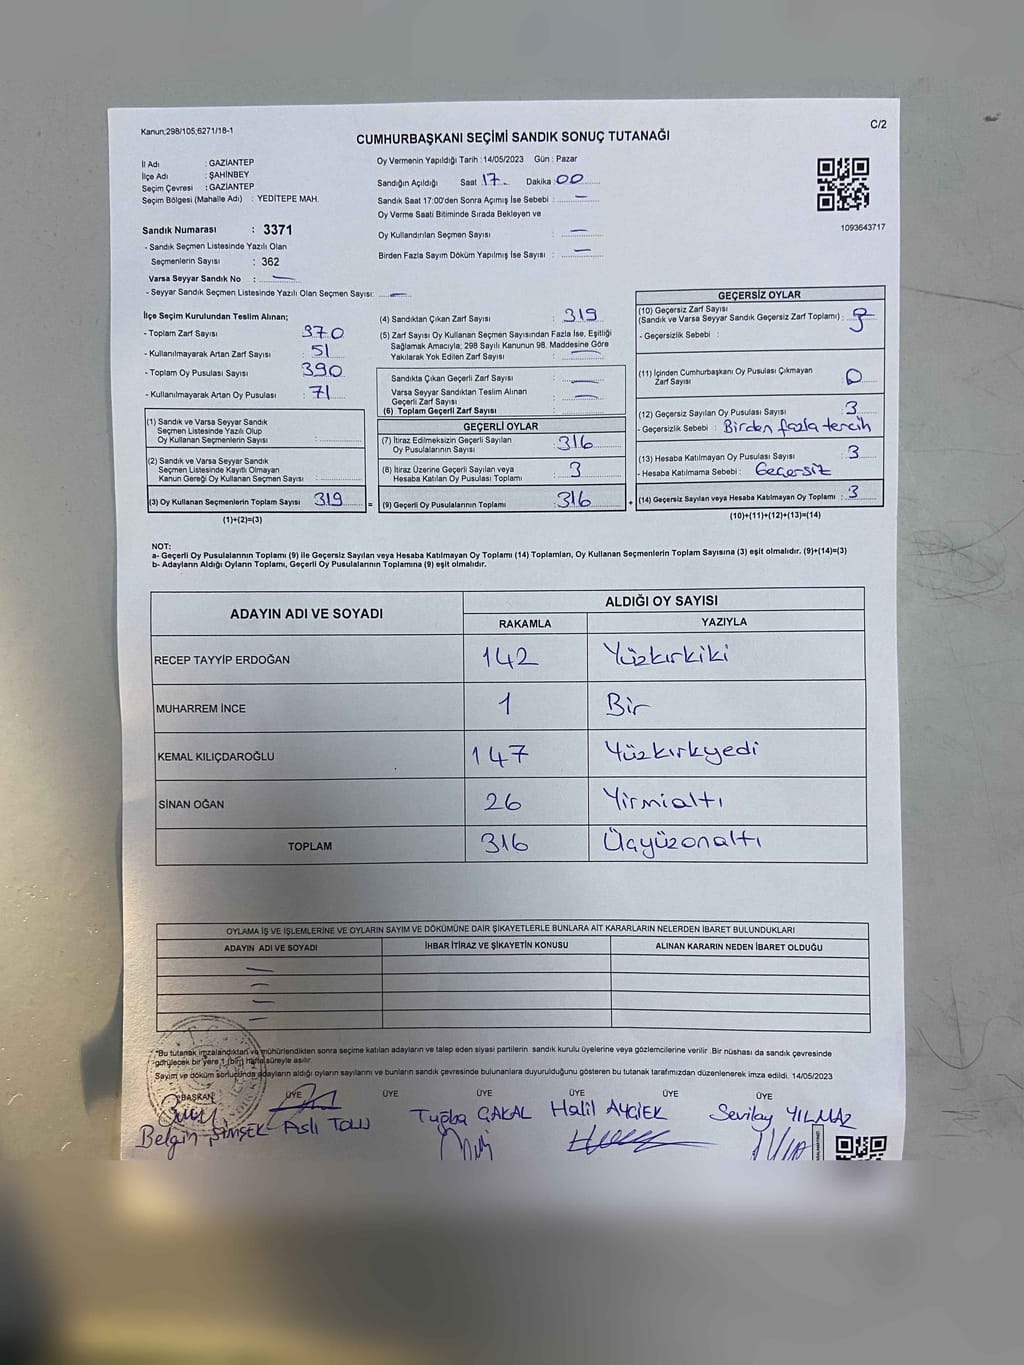 Kanun;298/105;6271/18-1
C/2
CUMHURBAŞKANI SEÇİMİ SANDIK SONUÇ TUTANAĞI
İl Adı : GAZİANTEP
İlçe Adı : ŞAHİNBEY
Seçim Çevresi : GAZİANTEP
Seçim Bölgesi (Mahalle Adı) : YEDİTEPE MAH.
Sandık Numarası : 3371
- Sandık Seçmen Listesinde Yazılı Olan
Seçmenlerin Sayısı : 362
Varsa Seyyar Sandık No : —
- Seyyar Sandık Seçmen Listesinde Yazılı Olan Seçmen Sayısı: —
Oy Vermenin Yapıldığı Tarih : 14/05/2023 Gün : Pazar
Sandığın Açıldığı Saat 17 Dakika : 00
Sandık Saat 17:00'den Sonra Açımış İse Sebebi : —
Oy Verme Saati Bitiminde Sırada Bekleyen ve
Oy Kullandırılan Seçmen Sayısı : —
Birden Fazla Sayım Döküm Yapılmış İse Sayısı : —
1093643717
İlçe Seçim Kurulundan Teslim Alınan;
- Toplam Zarf Sayısı : 370
- Kullanılmayarak Artan Zarf Sayısı : 51
- Toplam Oy Pusulası Sayısı : 390
- Kullanılmayarak Artan Oy Pusulası : 71
(1) Sandık ve Varsa Seyyar Sandık
Seçmen Listesinde Yazılı Olup
Oy Kullanan Seçmenlerin Sayısı :
(2) Sandık ve Varsa Seyyar Sandık
Seçmen Listesinde Kayıtlı Olmayan
Kanun Gereği Oy Kullanan Seçmen Sayısı :
(3) Oy Kullanan Seçmenlerin Toplam Sayısı : 319 =
(1)+(2)=(3)
(4) Sandıktan Çıkan Zarf Sayısı : 319
(5) Zarf Sayısı Oy Kullanan Seçmen Sayısından Fazla İse, Eşitliği
Sağlamak Amacıyla; 298 Sayılı Kanunun 98. Maddesine Göre
Yakılarak Yok Edilen Zarf Sayısı : —
Sandıkta Çıkan Geçerli Zarf Sayısı : —
Varsa Seyyar Sandıktan Teslim Alınan
Geçerli Zarf Sayısı : —
(6) Toplam Geçerli Zarf Sayısı :
GEÇERLİ OYLAR
(7) İtiraz Edilmeksizin Geçerli Sayılan
Oy Pusulalarının Sayısı : 316
(8) İtiraz Üzerine Geçerli Sayılan veya
Hesaba Katılan Oy Pusulası Toplamı : 3
(9) Geçerli Oy Pusulalarının Toplamı : 316 +
GEÇERSİZ OYLAR
(10) Geçersiz Zarf Sayısı
(Sandık ve Varsa Seyyar Sandık Geçersiz Zarf Toplamı) :
- Geçersizlik Sebebi :
(11) İçinden Cumhurbaşkanı Oy Pusulası Çıkmayan
Zarf Sayısı : 0
(12) Geçersiz Sayılan Oy Pusulası Sayısı : 3
- Geçersizlik Sebebi : Birden fazla tercih
(13) Hesaba Katılmayan Oy Pusulası Sayısı : 3
- Hesaba Katılmama Sebebi : Geçersiz
(14) Geçersiz Sayılan veya Hesaba Katılmayan Oy Toplamı : 3
(10)+(11)+(12)+(13)=(14)
NOT:
a- Geçerli Oy Pusulalarının Toplamı (9) ile Geçersiz Sayılan veya Hesaba Katılmayan Oy Toplamı (14) Toplamları, Oy Kullanan Seçmenlerin Toplam Sayısına (3) eşit olmalıdır. (9)+(14)=(3)
b- Adayların Aldığı Oyların Toplamı, Geçerli Oy Pusulalarının Toplamına (9) eşit olmalıdır.
ADAYIN ADI VE SOYADI
ALDIĞI OY SAYISI
RAKAMLA YAZIYLA
RECEP TAYYİP ERDOĞAN 142 Yüzkırkiki
MUHARREM İNCE 1 Bir
KEMAL KILIÇDAROĞLU 147 Yüzkırkyedi
SİNAN OĞAN 26 Yirmialtı
TOPLAM 316 Üçyüzonaltı
OYLAMA İŞ VE İŞLEMLERİNE VE OYLARIN SAYIM VE DÖKÜMÜNE DAİR ŞİKAYETLERLE BUNLARA AİT KARARLARIN NELERDEN İBARET BULUNDUKLARI
ADAYIN ADI VE SOYADI İHBAR İTİRAZ VE ŞİKAYETİN KONUSU ALINAN KARARIN NEDEN İBARET OLDUĞU
—
—
—
—
"Bu tutanak imzalandıktan ve mühürlendikten sonra seçime katılan adayların ve talep eden siyasi partilerin sandık kurulu üyelerine veya gözlemcilerine verilir .Bir nüshası da sandık çevresinde
görülecek bir yere 1 (bir) hafta süreyle asılır.
Sayım ve döküm sonucunda adayların aldığı oyların sayılarını ve bunların sandık çevresinde bulunanlara duyurulduğunu gösteren bu tutanak tarafımızdan düzenlenerek imza edildi. 14/05/2023
BAŞKAN ÜYE ÜYE ÜYE ÜYE ÜYE ÜYE
Belgin ŞİMŞEK Aslı Tuğba ÇAKAL Halil AYÇİEK Sevilay YILMAZ